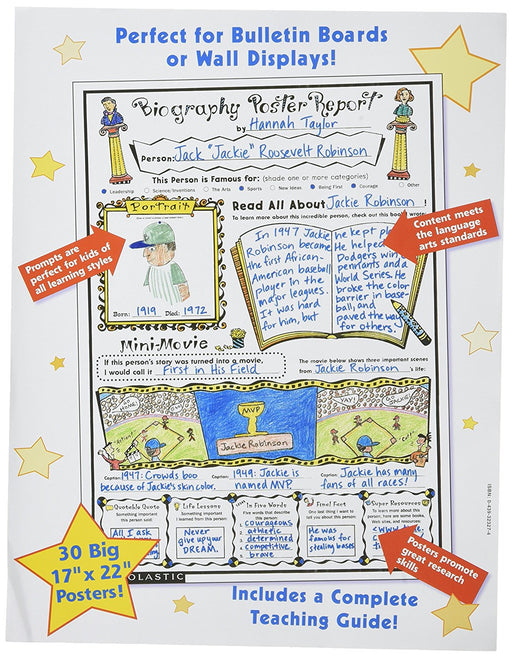 Perfect for Bulletin Boards
or Wall Displays!
Biography Poster Report
by Hannah Taylor
Person: Jack "Jackie" Roosevelt Robinson
This Person is Famous for: (shade one or more categories)
Leadership Science/Inventions The Arts Sports New Ideas Being First Courage Other
Portrait
Born: 1919 Died: 1972
Read All About Jackie Robinson !
To learn more about this incredible person, check out this book I wrote:
In 1947 Jackie
Robinson became
the first African-
American baseball
player in the
major leagues.
It was hard
for him, but
he kept pl
He helped
Dodgers win
pennants and a
World Series. He
broke the color
barrier in base-
ball, and
paved the way
for others.
Prompts are
perfect for kids of
all learning styles
Content meets
the language
arts standards
Mini-Movie
If this person's story was turned into a movie,
I would call it First in His Field
The movie below shows three important scenes
from Jackie Robinson 's life:
MVP
Jackie Robinson
YAY!
Caption: 1947: Crowds boo
because of Jackie's skin color.
Caption: 1949: Jackie is
named MVP.
Caption: Jackie has many
fans of all races!
Quotable Quote
Something important
this person said:
All I ask
Life Lessons
Something important
I learned from this person:
Never
give up your
DREAM.
In Five Words
Five words that describe
this person:
1. courageous
2. athletic
3. determined
4. competitive
5. brave
Final Fact
One last thing I want to
tell you about this person:
He was
famous for
stealing bases
Super Resources
To learn more about this
person, here are some books,
Web sites, and resources:
30 Big
17" x 22"
Posters!
SCHOLASTIC
Posters promote
great research
skills
Includes a Complete
Teaching Guide!